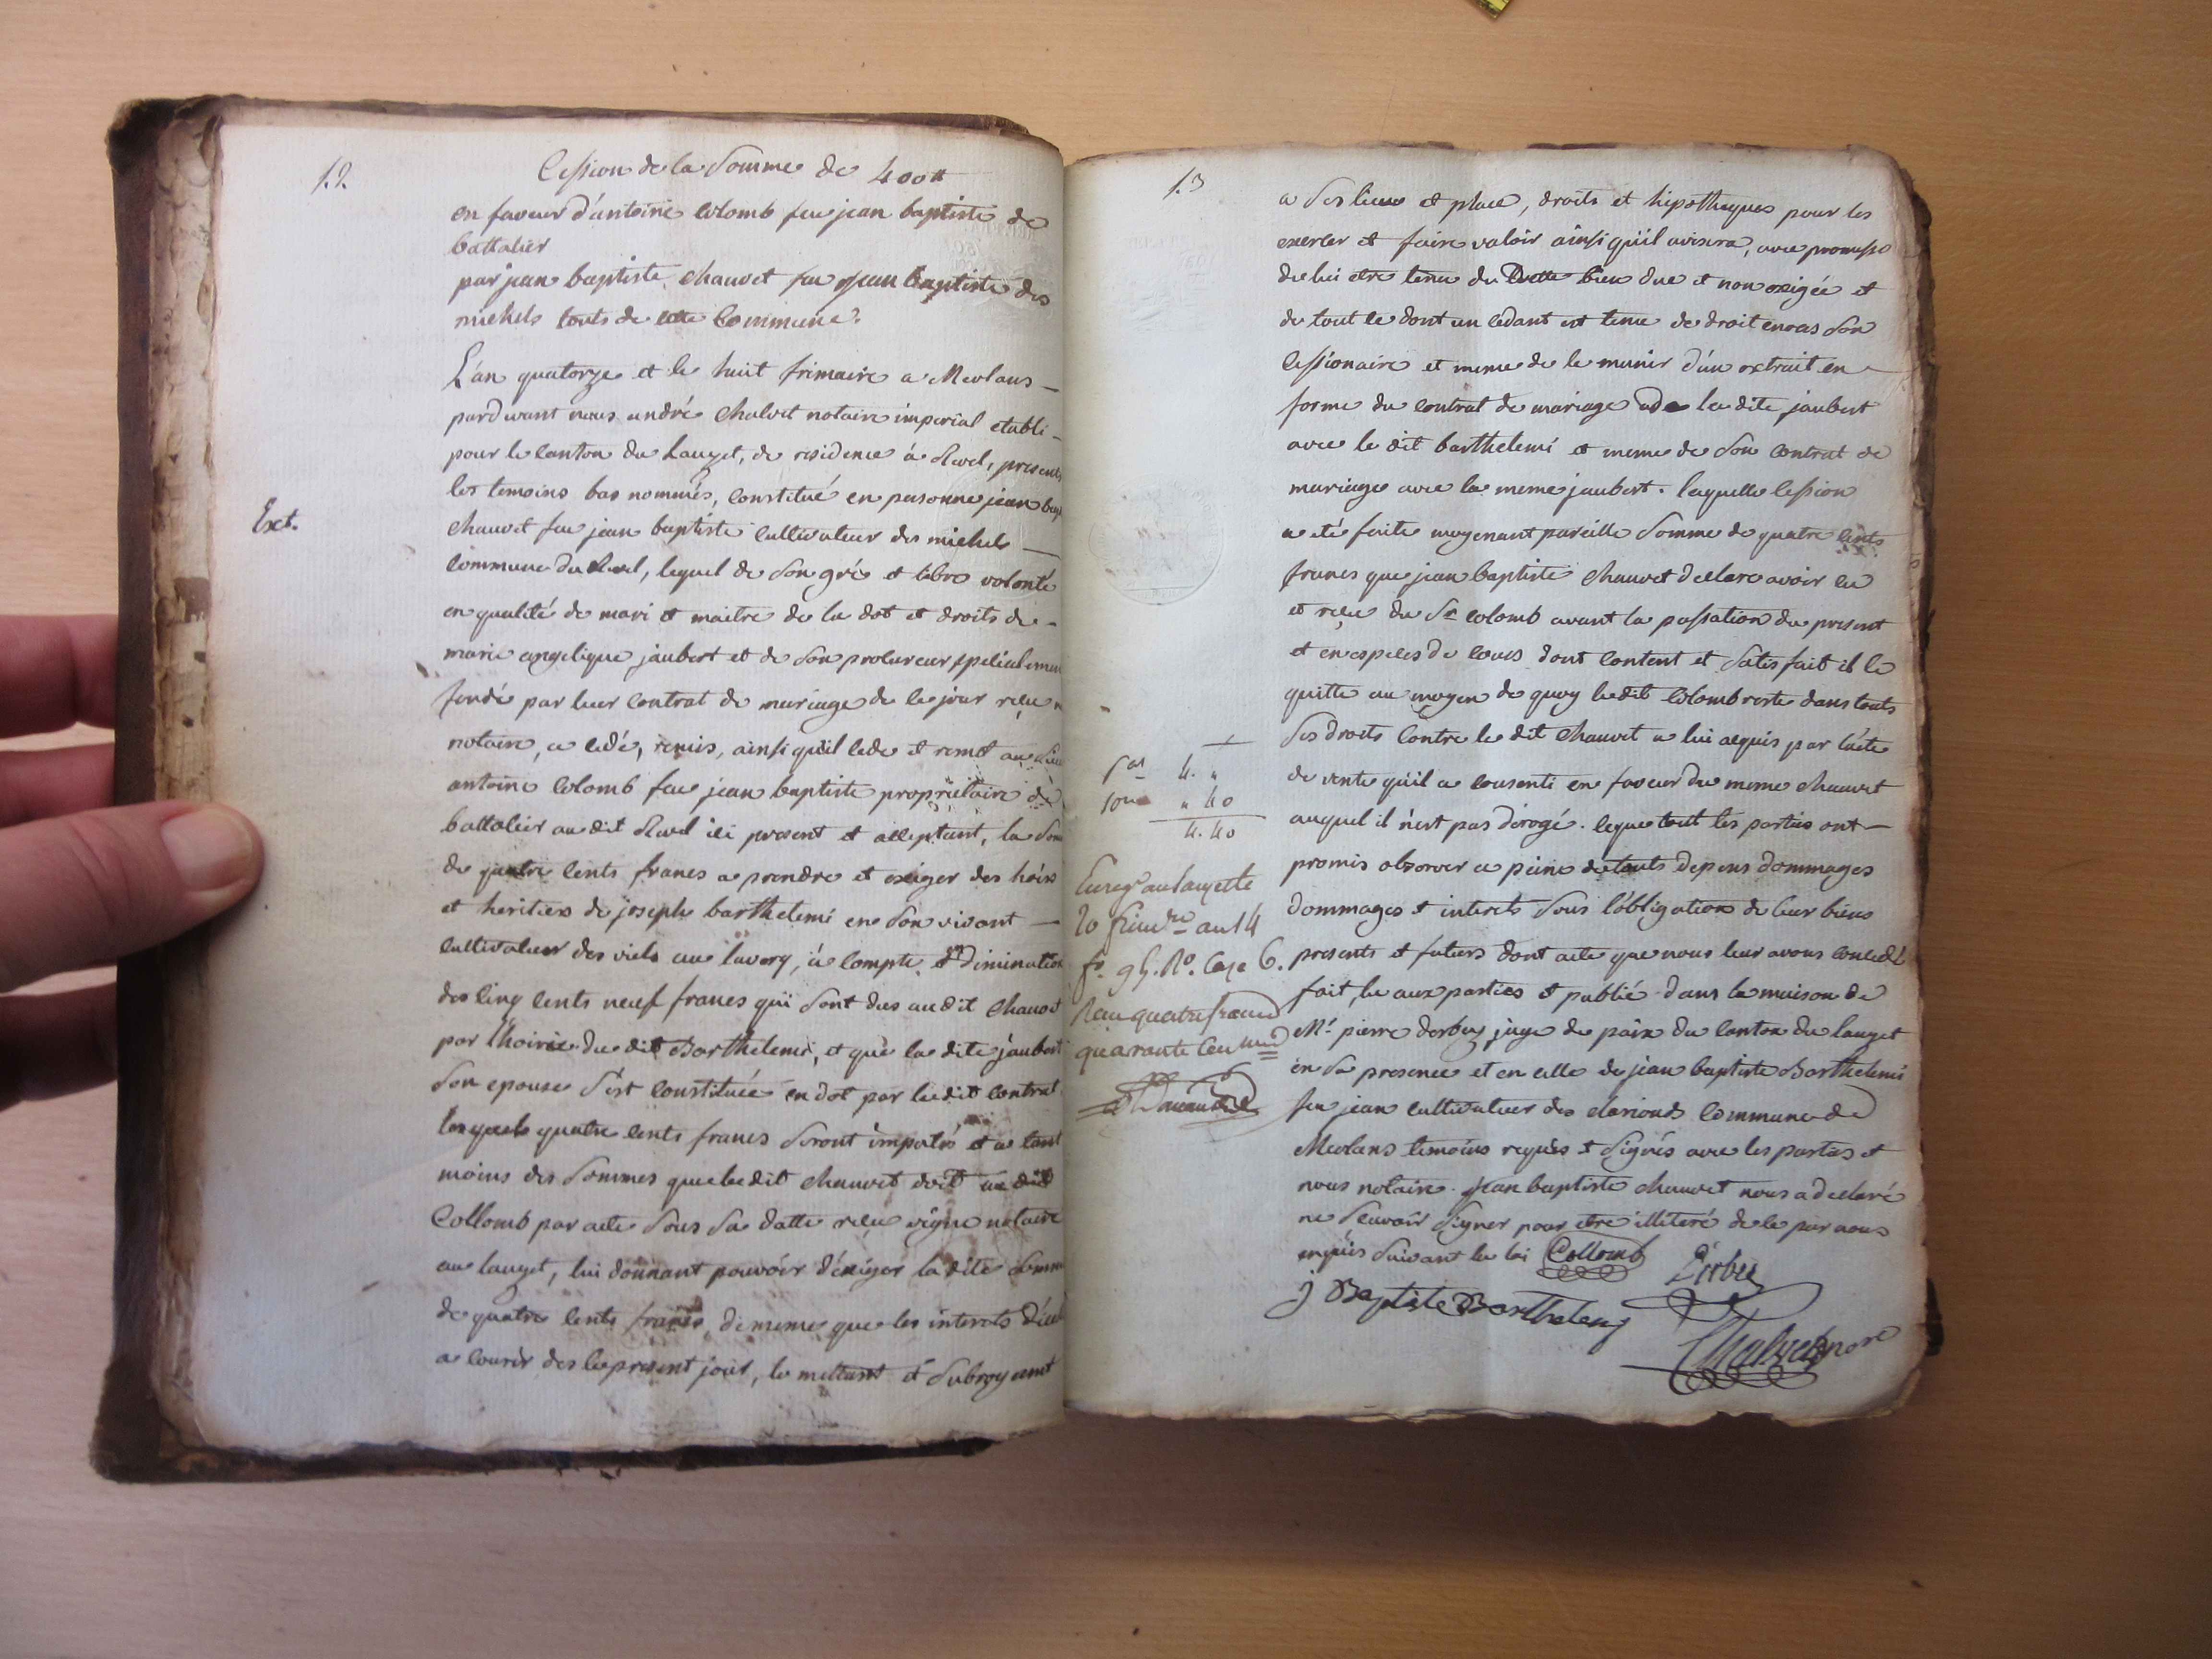 12.
Cession de la somme de 400#
en faveur d'antoine Colomb feu jean baptiste de
battalier
par jean baptiste chauvet feu jean baptiste des
michels touts de cette Commune.
L'an quatorze et le huit frimaire a Meolans
pardevant nous andré chalvet notaire impérial etabli
pour le canton du Lauzet, de residence à Revel, presents
les temoins bas nommés, constitué en personne jean bap
Ext.
chauvet feu jean baptiste cultivateur des michels
commune du Revel, lequel de son gré et libre volonté
en qualité de mari et maitre de la dot et droits de
marie angelique jaubert et de son procureur specialemen
fondé par leur contrat de mariage de ce jour reçu n
notaire, a cedé, remis, ainsi qu'il cede et remet au sieu
antoine Colomb feu jean baptiste propriétaire de
battalier au dit Revel ici present et acceptant, la som
de quatre cents francs a prendre et exiger des hoirs
et heritiers de joseph barthelemi en son vivant
cultivateur des viels au lavercq, à compte et diminution
des cinq cents neuf francs qui sont dus au dit chauvet
par l'hoirie du dit Barthelemi, et que la dite jaubert
son epouse s'est constituée en dot par le dit contrat
lesquels quatre cents francs seront imputés et a tant
moins des sommes que le dit chauvet doit au dit
Collomb par acte sous sa datte reçu vigne notaire
au lauzet, lui donnant pouvoir d'exiger la dite somme
de quatre cents francs, de meme que les interets d'icel
a courir des le present jour, le mettant et subrogeant
13
a ses lieu et place, droits et hipotheques pour les
exercer et faire valoir ainsi qu'il avisera, avec promesse
de lui etre tenu du Dette bien due et non exigée et
de tout ce dont un cedant est tenu de droit envers son
cessionaire et meme de le munir d'un extrait en
forme du contrat de mariage de la dite jaubert
avec le dit barthelemi et meme de son contrat de
mariage avec la meme jaubert. laquelle cession
a eté faite moyenant pareille somme de quatre cents
francs que jean baptiste chauvet declare avoir eu
et reçu du Sr colomb avant la passation du present
et en especes de cours dont content et satisfait il le
quitte au moyen de quoy le dit Colomb reste dans touts
ses droits contre le dit chauvet a lui acquis par l'acte
de vente qu'il a consenti en faveur du meme chauvet
auquel il n'est pas dérogé. leque tout les parties ont
promis observer a peine de touts depens dommages
dommages et interets sous l'obligation de leur biens
presents et futurs dont acte que nous leur avons concedé
fait, lu aux parties et publié dans la maison de
Mr. pierre derbez juge de paix du canton du lauzet
en sa presence et en celle de jean baptiste Barthelemi
feu jean cultivateur des clarionds commune de
Meolans temoins requis et signés avec les parties et
nous notaire. jean baptiste chauvet nous a declaré
ne scavoir signer pour etre illiteré de ce par nous
enquis suivant la loi Collomb Derbez
j Baptiste Barthelemy
Chalvet nore
4. "
10me " 40
4. 40
Enregé au lauzette
20 frimre an 14
fo. 95. Ro. Case 6.
Reçu quatre francs
quarante centimes